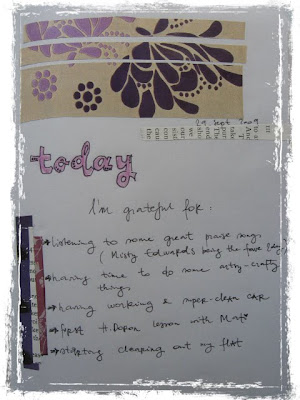 29 Oct 2009
today
I'm grateful for:
listening to some great praise songs
(Misty Edwards being the fave today)
having time to do some artsy-crafty
things
having working & super-clean CAR
first H.Doron lesson with Mat
starting cleaning out my flat